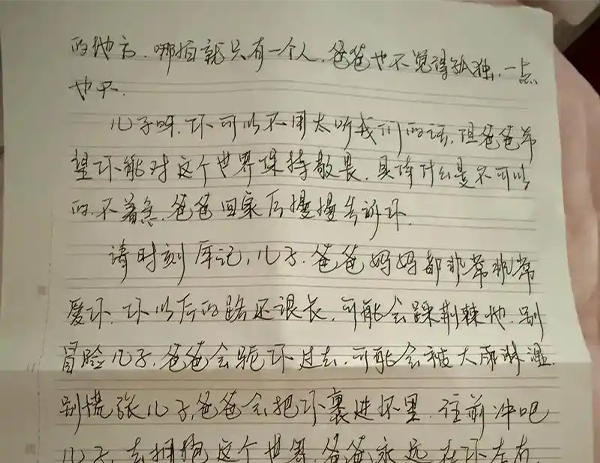 的地方.哪怕就只有一个人.爸爸也不觉得孤独,一点
也不.
儿子呀.你可以不用太听我们的话,但爸爸希
望你能对这个世界保持敬畏.具体什么是不可以
的.不着急.爸爸回家后慢慢告诉你.
请时刻牢记,儿子.爸爸妈妈都非常非常
爱你.你以后的路还很长.可能会踩荆棘地.别
冒险儿子,爸爸会驼你过去.可能会被大雨淋湿.
别慌张儿子,爸爸会把你裹进怀里.往前冲吧
儿子.去拥抱这个世界.爸爸永远在你左右.